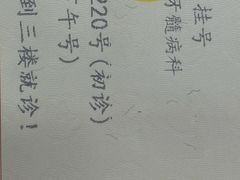 挂号
牙髓病科
220号(初诊)
午号)
到三楼就诊!